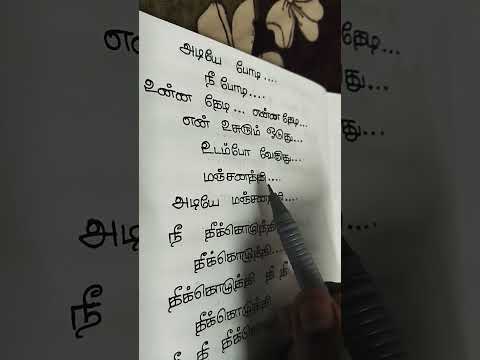 அடியே போடி....
நீ போடி....
உன்ன தேடி... என்ன தேடி...
என் உசுரும் ஓடுது...
உடம்போ வேகுது...
மஞ்சனத்தி....
அடியே மஞ்சனத்தி....
நீ தீக்கொடுத்தி
தீக்கொடுத்தி...
தீக்கொடுத்தி தீ தீ
தீக்கொடுத்தி
நீ தீ